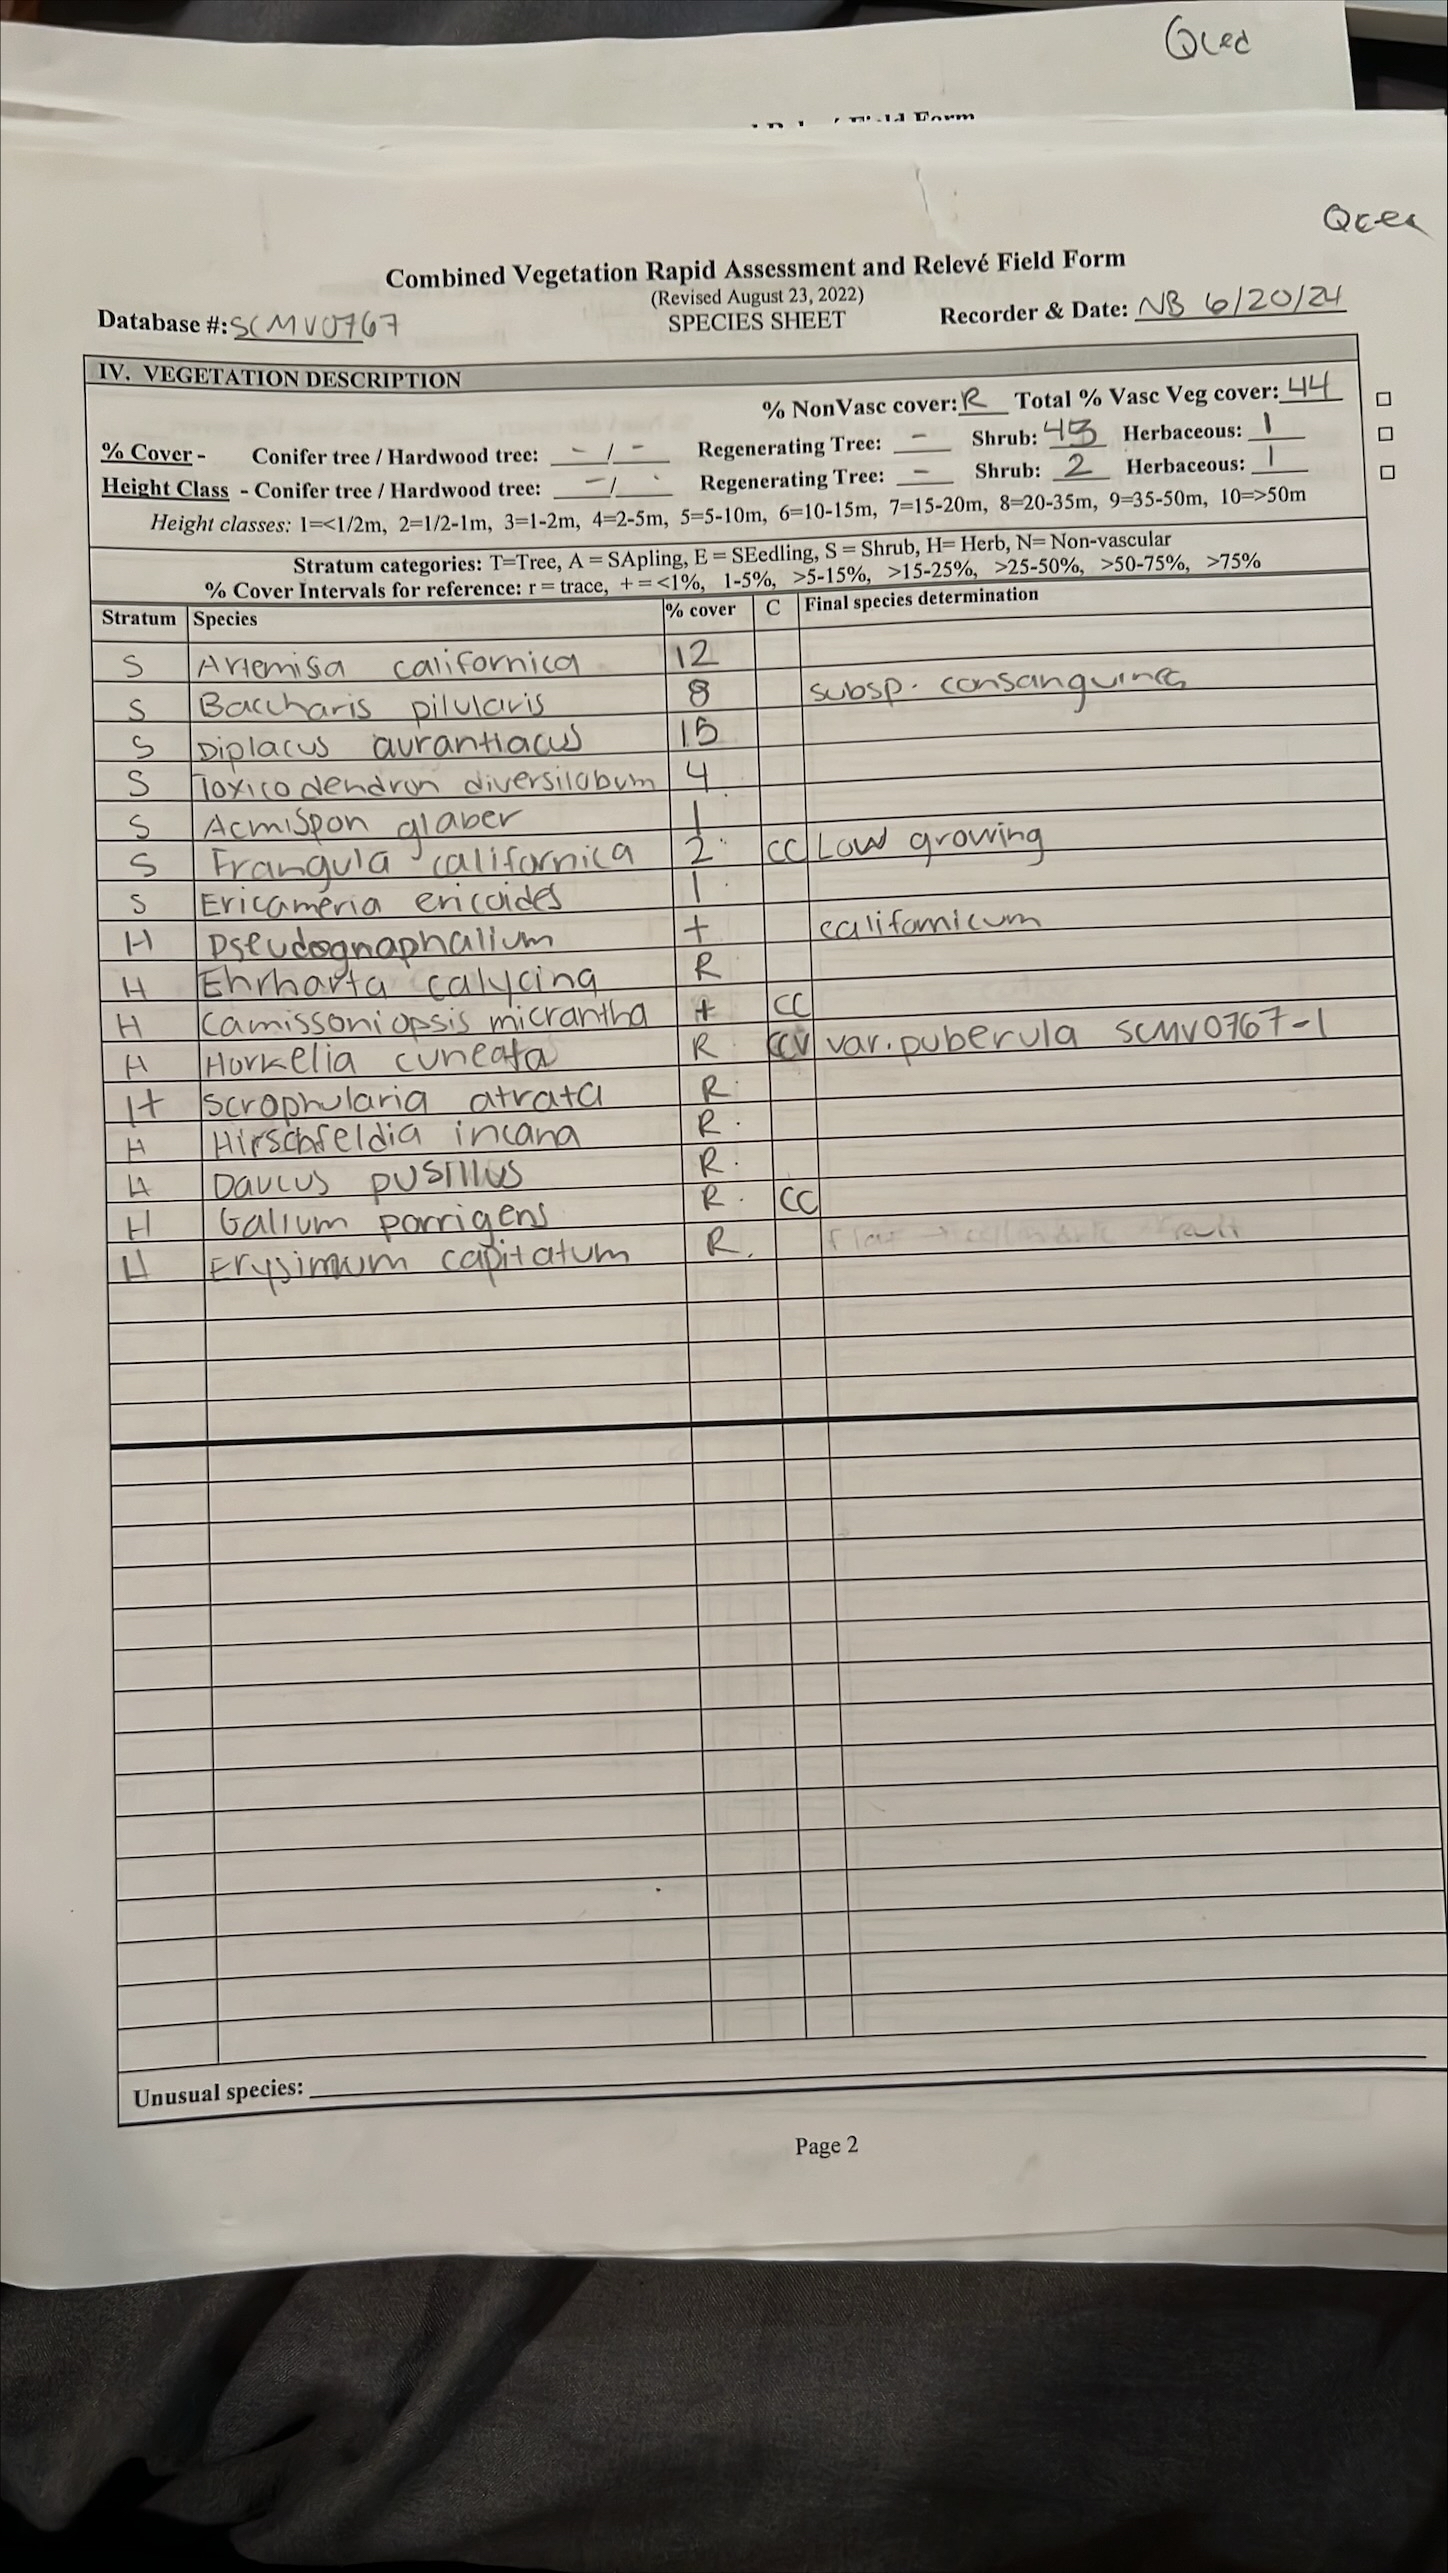 Qced
Field Form
Qced
Combined Vegetation Rapid Assessment and Relevé Field Form
(Revised August 23, 2022)
Database #: SCMV0767 SPECIES SHEET Recorder & Date: NB 6/20/24
IV. VEGETATION DESCRIPTION
% NonVasc cover: R Total % Vasc Veg cover: 44
% Cover - Conifer tree / Hardwood tree: - / - Regenerating Tree: - Shrub: 43 Herbaceous: 1
Height Class - Conifer tree / Hardwood tree: - / - Regenerating Tree: - Shrub: 2 Herbaceous: 1
Height classes: 1=<1/2m, 2=1/2-1m, 3=1-2m, 4=2-5m, 5=5-10m, 6=10-15m, 7=15-20m, 8=20-35m, 9=35-50m, 10=>50m
Stratum categories: T=Tree, A = SApling, E = SEedling, S = Shrub, H= Herb, N= Non-vascular
% Cover Intervals for reference: r = trace, + = <1%, 1-5%, >5-15%, >15-25%, >25-50%, >50-75%, >75%
Stratum Species % cover C Final species determination
S Artemisia californica 12
S Baccharis pilularis 8 subsp. consanguinea
S Diplacus aurantiacus 15
S Toxicodendron diversilobum 4
S Acmispon glaber 1
S Frangula californica 2 CC Low growing
S Ericameria ericoides 1
H Pseudognaphalium + californicum
H Ehrharta calycina R
H Camissoniopsis micrantha + CC
H Horkelia cuneata R CCV var. puberula SCMV0767-1
H Scrophularia atrata R
H Hirschfeldia incana R
H Daucus pusillus R
H Galium porrigens R CC
H Erysimum capitatum R
Unusual species:
Page 2